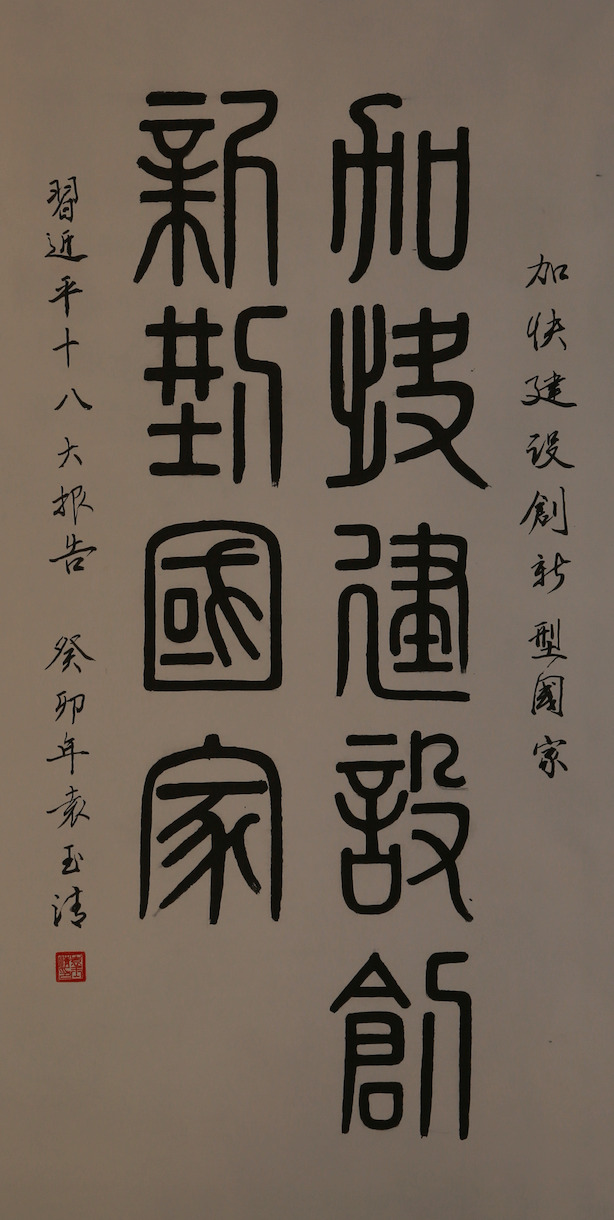 加快建设創新型國家
加快建設創
新型國家
習近平十八大报告 癸卯年袁玉清